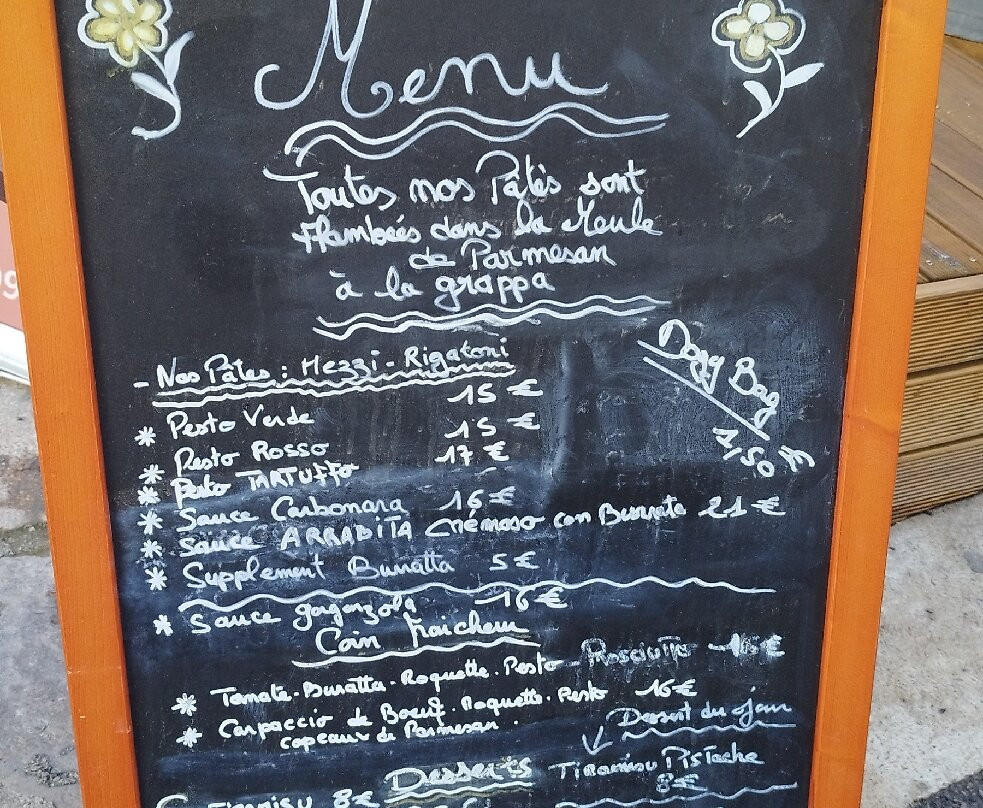 Menu
Toutes nos Pâtés sont
flambées dans la Meule
de Parmesan
à la grappa
- Nos Pâtes : Mezzi - Rigatoni
Dogg Bag
1,50 €
* Pesto Verde 15 €
* Pesto Rosso 15 €
* Pesto TARTUFFO 17 €
* Sauce Carbonara 16 €
* Sauce ARRABITA Crémoso con Burrata 21 €
* Supplement Buratta 5 €
* Sauce gorgonzola 16 €
Coin fraicheur
* Tomate. Buratta. Roquette. Pesto Prosciutto €
* Carpaccio de Boeuf. Roquette. Pesto 16 €
copeaux de Parmesan.
Dessert du jour
Desserts
Tiramisu Pistache
8€
Tiramisu 8€